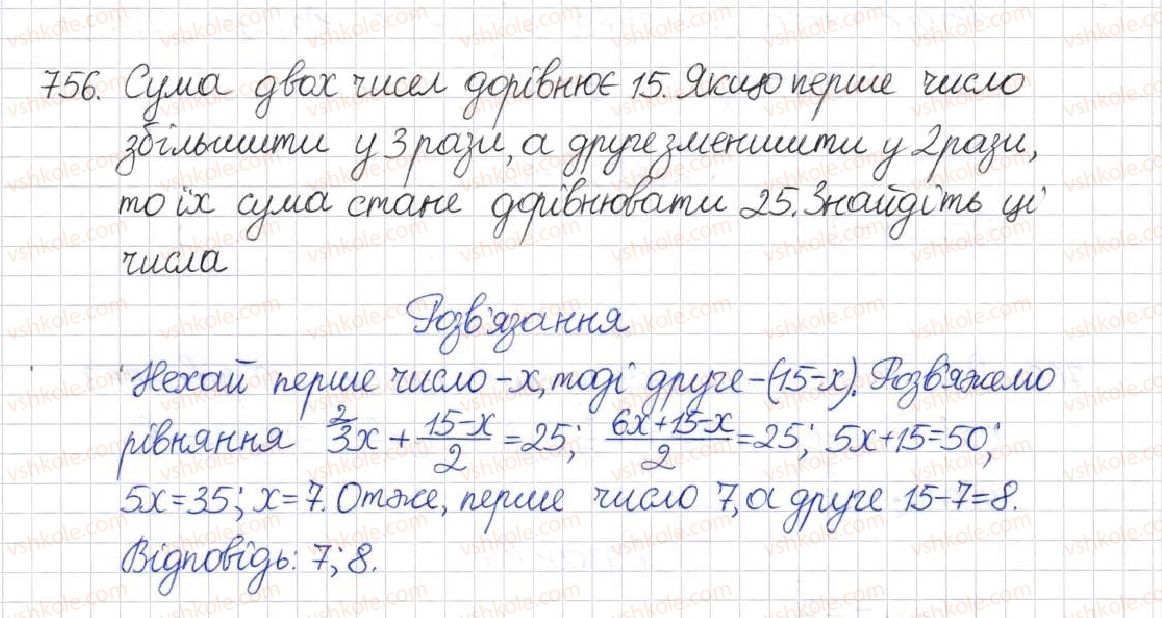 756. Сума двох чисел дорівнює 15. Якщо перше число
збільшити у 3 рази, а друге зменшити у 2 рази,
то їх сума стане дорівнювати 25. Знайдіть ці
числа
Розв'язання
Нехай перше число - х, тоді друге - (15-х). Розв'яжемо
рівняння ²⁄3х + (15-х)/2 = 25; (6х+15-х)/2 = 25; 5х+15=50;
5х=35; х=7. Отже, перше число 7, а друге 15-7=8.
Відповідь: 7; 8.